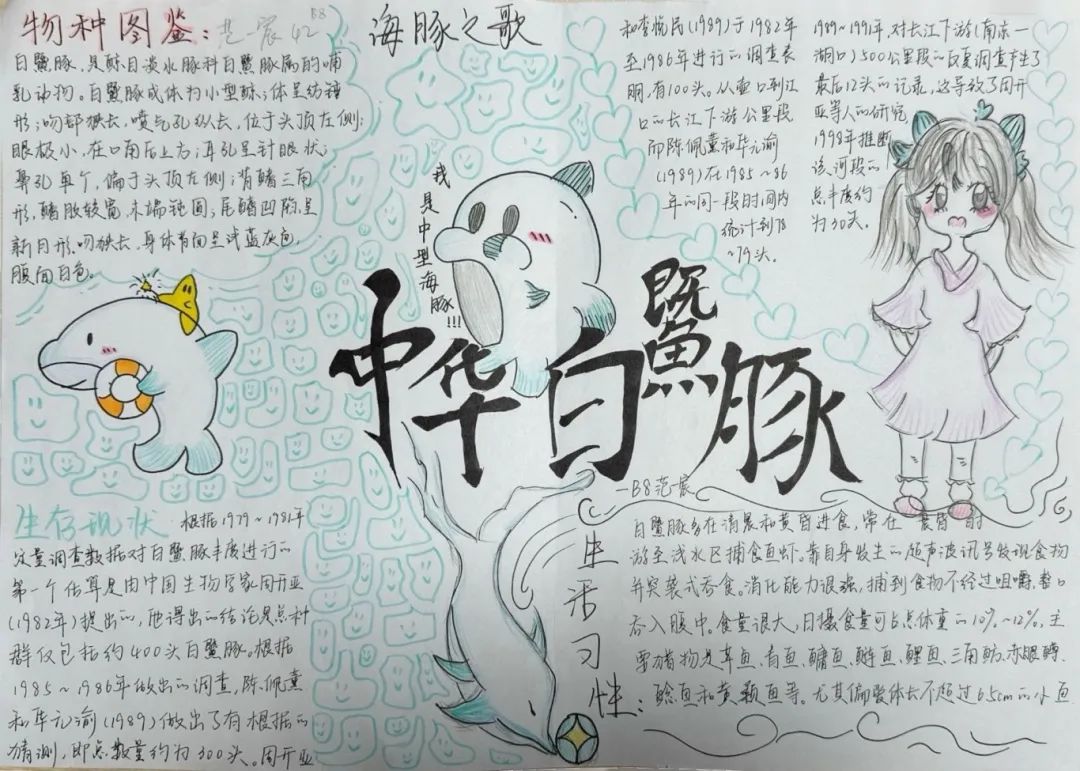 物种图鉴:范一宸 42
B8
白鱀豚,是鲸目淡水豚科白鱀豚属的哺
乳动物。白鱀豚成体为小型鲸;体呈纺锤
形;吻部狭长,喷气孔纵长,位于头顶左侧;
眼极小,在口角后上方;耳孔呈针眼状;
鼻孔单个,偏于头顶左侧;背鳍三角
形,鳍肢较宽,末端钝圆;尾鳍凹陷呈
新月形.吻狭长,身体背面呈浅蓝灰色,
腹面白色。
海豚之歌
我是中型海豚!!!
中华白鱀豚
—B8范宸
生存现状
根据1979~1981年
定量调查数据对白鱀豚丰度进行的
第一个估算是由中国生物学家周开亚
(1982年)提出的,他得出的结论是总种
群仅包括约400头白鱀豚。根据
1985~1986年做出的调查,陈佩薰
和华元渝(1989)做出了有根据的
猜测,即总数量约为300头。周开亚
和李悦民(1989)于1982年
至1986年进行的调查表
明,有100头。从湖口到江
口的长江下游公里段
而陈佩薰和华元渝
(1989)在1985~86
年的同一段时间内
统计到78
~79头。
1989~1991年,对长江下游(南京一
湖口)500公里段的夏调查产生了
最后12头的记录,这导致了周开
亚等人的研究,
1998年推断
该河段的
总丰度约
为30头。
生活习性:
白鱀豚多在清晨和黄昏进食,常在晨昏时
游至浅水区捕食鱼虾.靠自身发生的超声波讯号发现食物
并突袭式吞食。消化能力很强,捕到食物不经过咀嚼.整口
吞入腹中。食量很大,日摄食量可占总体重的10%~12%,主
要猎物是草鱼、青鱼、鳙鱼、鲢鱼、鲤鱼、三角鲂、赤眼鳟、
鲶鱼和黄颡鱼等。尤其偏爱体长不超过6.5cm的小鱼